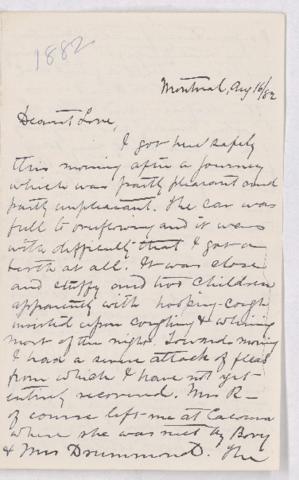 1882
Montreal, Aug 16/82
Dearest Love,
I got here safely
this morning after a journey
which was partly pleasant and
partly unpleasant. The car was
full to overflowing and it was
with difficulty that I got a
berth at all. It was close
and stuffy and two children
apparently with hooking-cough
insisted upon coughing & whining
most of the night. Towards morning
I had a severe attack of fleas
from which I have not yet
entirely recovered. Mrs R-
of course left me at Cacouna
where she was met by
& Miss Drummond. The